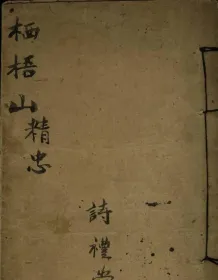 栖梧山精忠
詩禮堂